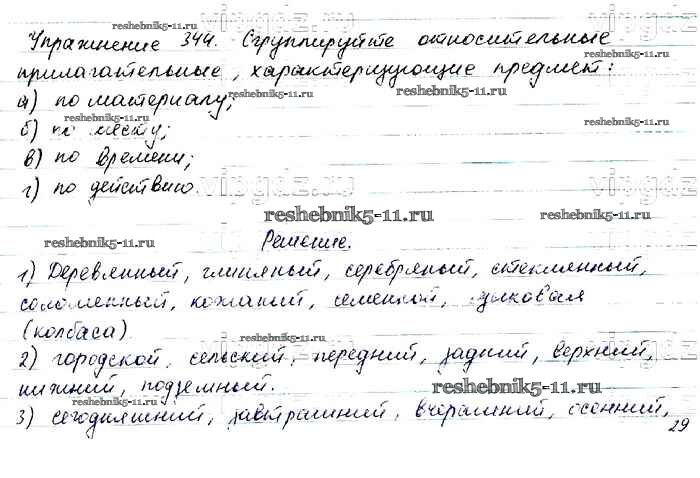 reshebnik5-11.ru
Упражнение 344. Сгруппируйте относительные
прилагательные, характеризующие предмет:
reshebnik5-11.ru reshebnik5-11.ru
а) по материалу;
б) по месту;
reshebnik5-11.ru reshebnik5-11.ru
в) по времени;
г) по действию.
vipgdz.ru vipgdz.ru
reshebnik5-11.ru reshebnik5-11.ru reshebnik5-11.ru
Решение.
1) Деревянный, глиняный, серебряный, стеклянный,
соломенный, кожаный, семенной,
(колбаса).
reshebnik5-11.ru reshebnik5-11.ru
2) городской, сельский, передний, задний, верхний,
нижний, подземный.
reshebnik5-11.ru reshebnik5-11.ru
3) сегодняшний, завтрашний, вчерашний, осенний,
29